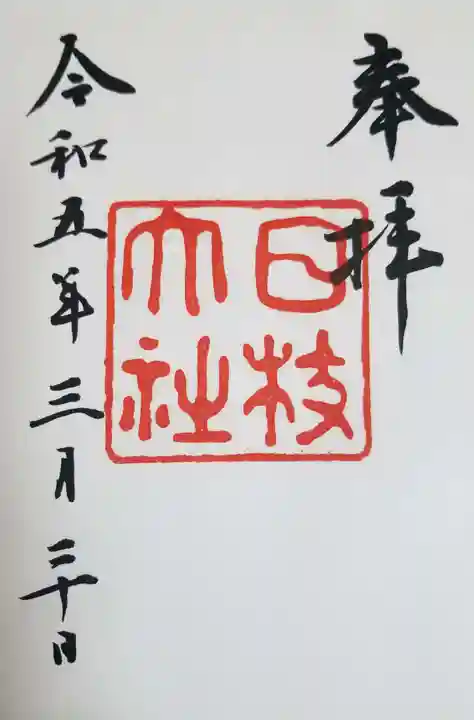 奉拝
日枝
大社
令和五年三月二十日